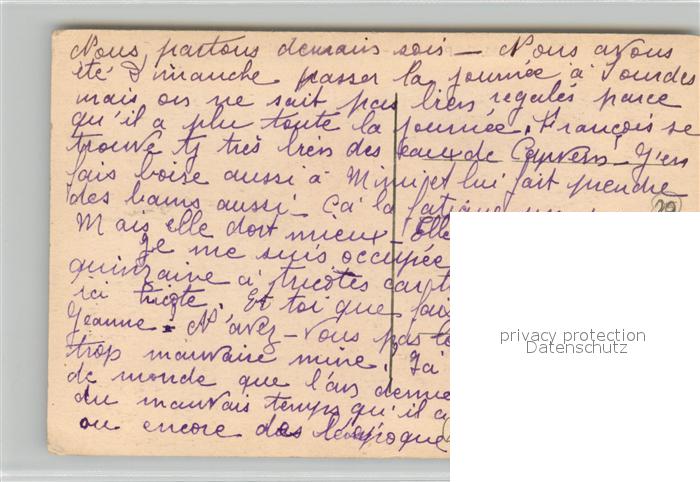 Nous partons demain soir — Nous avons
été Dimanche passer la journée à Lourdes
mais on ne sait pas bien regalés parce
qu'il a plu toute la journée. François se
trouve tj très bien des eaux de Capvern — J'en
fais boire aussi à Mimi et lui fait prendre
des bains aussi — Ça la fatigue
29
Mais elle dort mieux — Elle
Je me suis occupée
quinzaine à tricoter car t
ici tricote. Et toi que fais
Jeanne — N'avez-vous pas
trop mauvaise mine.
de monde que l'an dernie
du mauvais temps qu'il a
ou encore de l'époque
privacy protection
Datenschutz